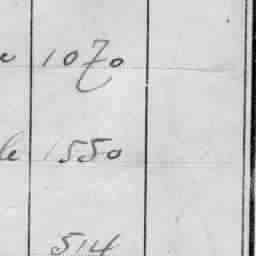 1070
le 1550
514